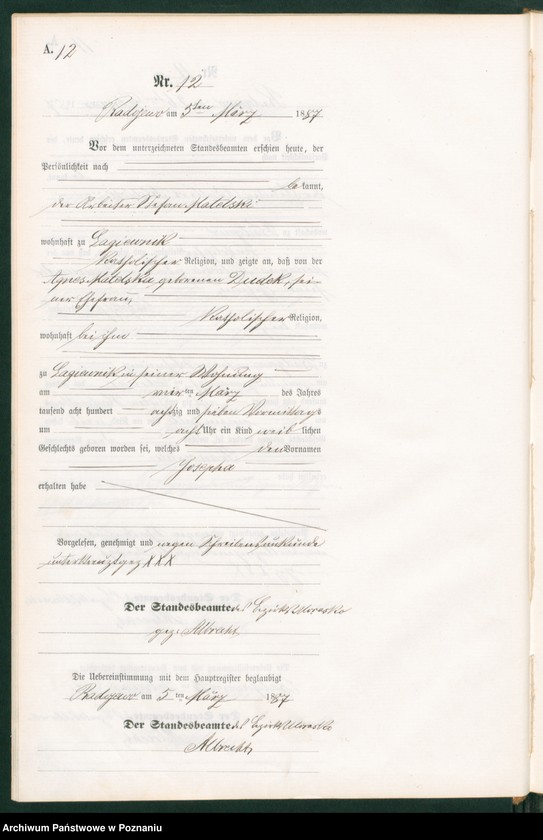 A. 12
Nr. 12
Radojewo am 5ten März 1887
Vor dem unterzeichneten Standesbeamten erschien heute, der
Persönlichkeit nach
bekannt,
der Arbeiter Stefan Matelski
wohnhaft zu Lagiewnik
katholischer Religion, und zeigte an, daß von der
Agnes Matelska geborenen Dudek, sei-
ner Ehefrau,
katholischer Religion,
wohnhaft bei ihm
zu Lagiewnik in seiner Wohnung
am vierten März des Jahres
tausend acht hundert achtzig und sieben Vormittags
um acht Uhr ein Kind weiblichen
Geschlechts geboren worden sei, welches den Vornamen
Josepha
erhalten habe
Vorgelesen, genehmigt und wegen Schreibensunkunde
unterkreuzt gez. XXX
Der Standesbeamte des Bezirks
gez. Albrecht
Die Uebereinstimmung mit dem Hauptregister beglaubigt
Radojewo am 5ten März 1887
Der Standesbeamte des Bezirks
Albrecht
Archiwum Państwowe w Poznaniu